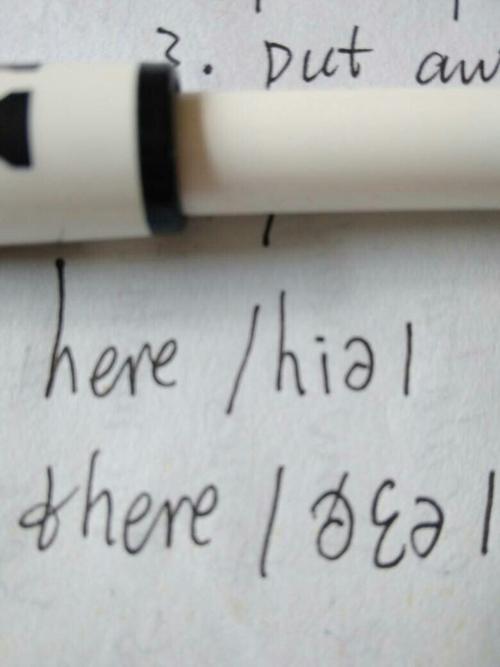 3. put aw
here /hiə/
there /ðɛə/